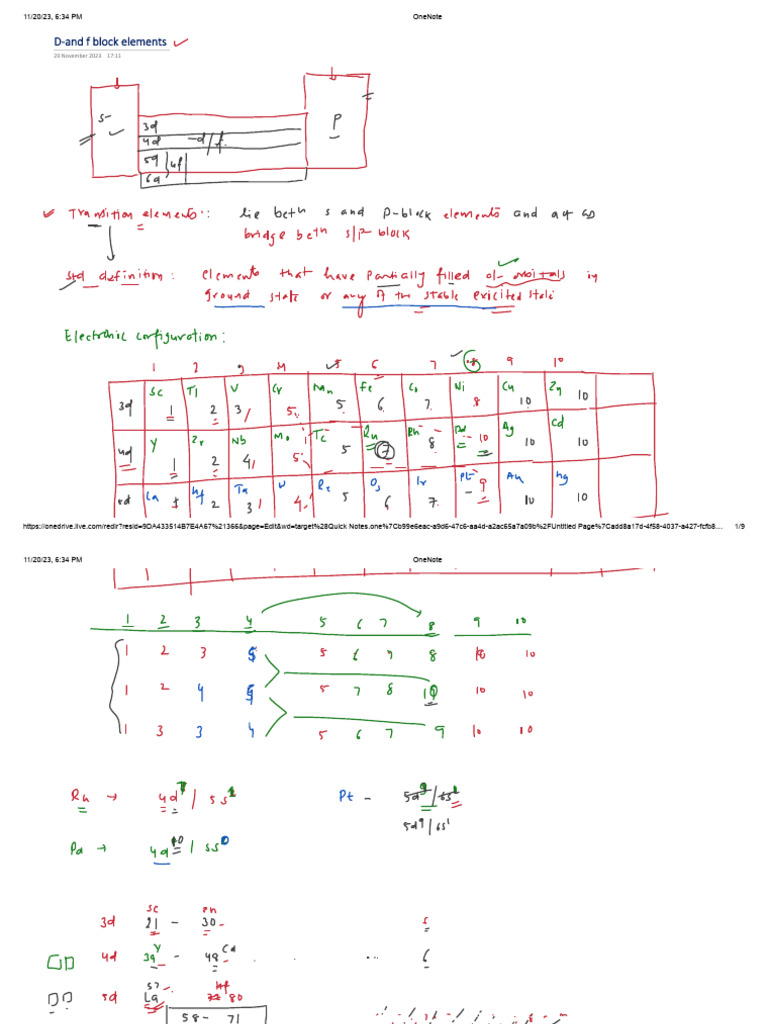 11/20/23, 6:34 PM OneNote
D-and f block elements
20 November 2023 17:11
S- P
3d
4d -d/f
5d 4f
6d
Transition elements: lie betn s and p-block elements and act as
bridge betn s/p block
Std definition: elements that have partially filled d-orbitals in
ground state or any of the stable
Electronic configuration:
1 2 3 4 5 6 7 8 9 10
3d Sc 1 Ti 2 V 3 Cr 5 Mn 5 Fe 6 Co 7 Ni 8 Cu 10 Zn 10
4d Y 1 Zr 2 Nb 4 Mo 5 Tc 5 Ru 7 Rh 8 Pd 10 Ag 10 Cd 10
5d La 1 Hf 2 Ta 3 W 4 Re 5 Os 6 Ir 7 Pt 9 Au 10 Hg 10
https://onedrive.live.com/redir?resid=9DA433514B7E4A67%21366&page=Edit&wd=target%28Quick Notes.one%7Cb99e6eac-a9d6-47c6-aa4d-a2ac65a7a09b%2FUntitled Page%7Cadd8a17d-4f58-4037-a427-fcfb8… 1/9
11/20/23, 6:34 PM OneNote
1 2 3 4 5 6 7 8 9 10
1 2 3 5 5 6 7 8 10 10
1 2 4 5 5 7 8 10 10 10
1 3 3 4 5 6 7 9 10 10
Ru → 4d7 / 5s1 Pt - 5d9/6s1
5d9/6s1
Pd → 4d10 / 5s0
Sc
3d 21 - 30
4d 39 Y - 48 Cd ... 6
57
5d La 80
58 - 71